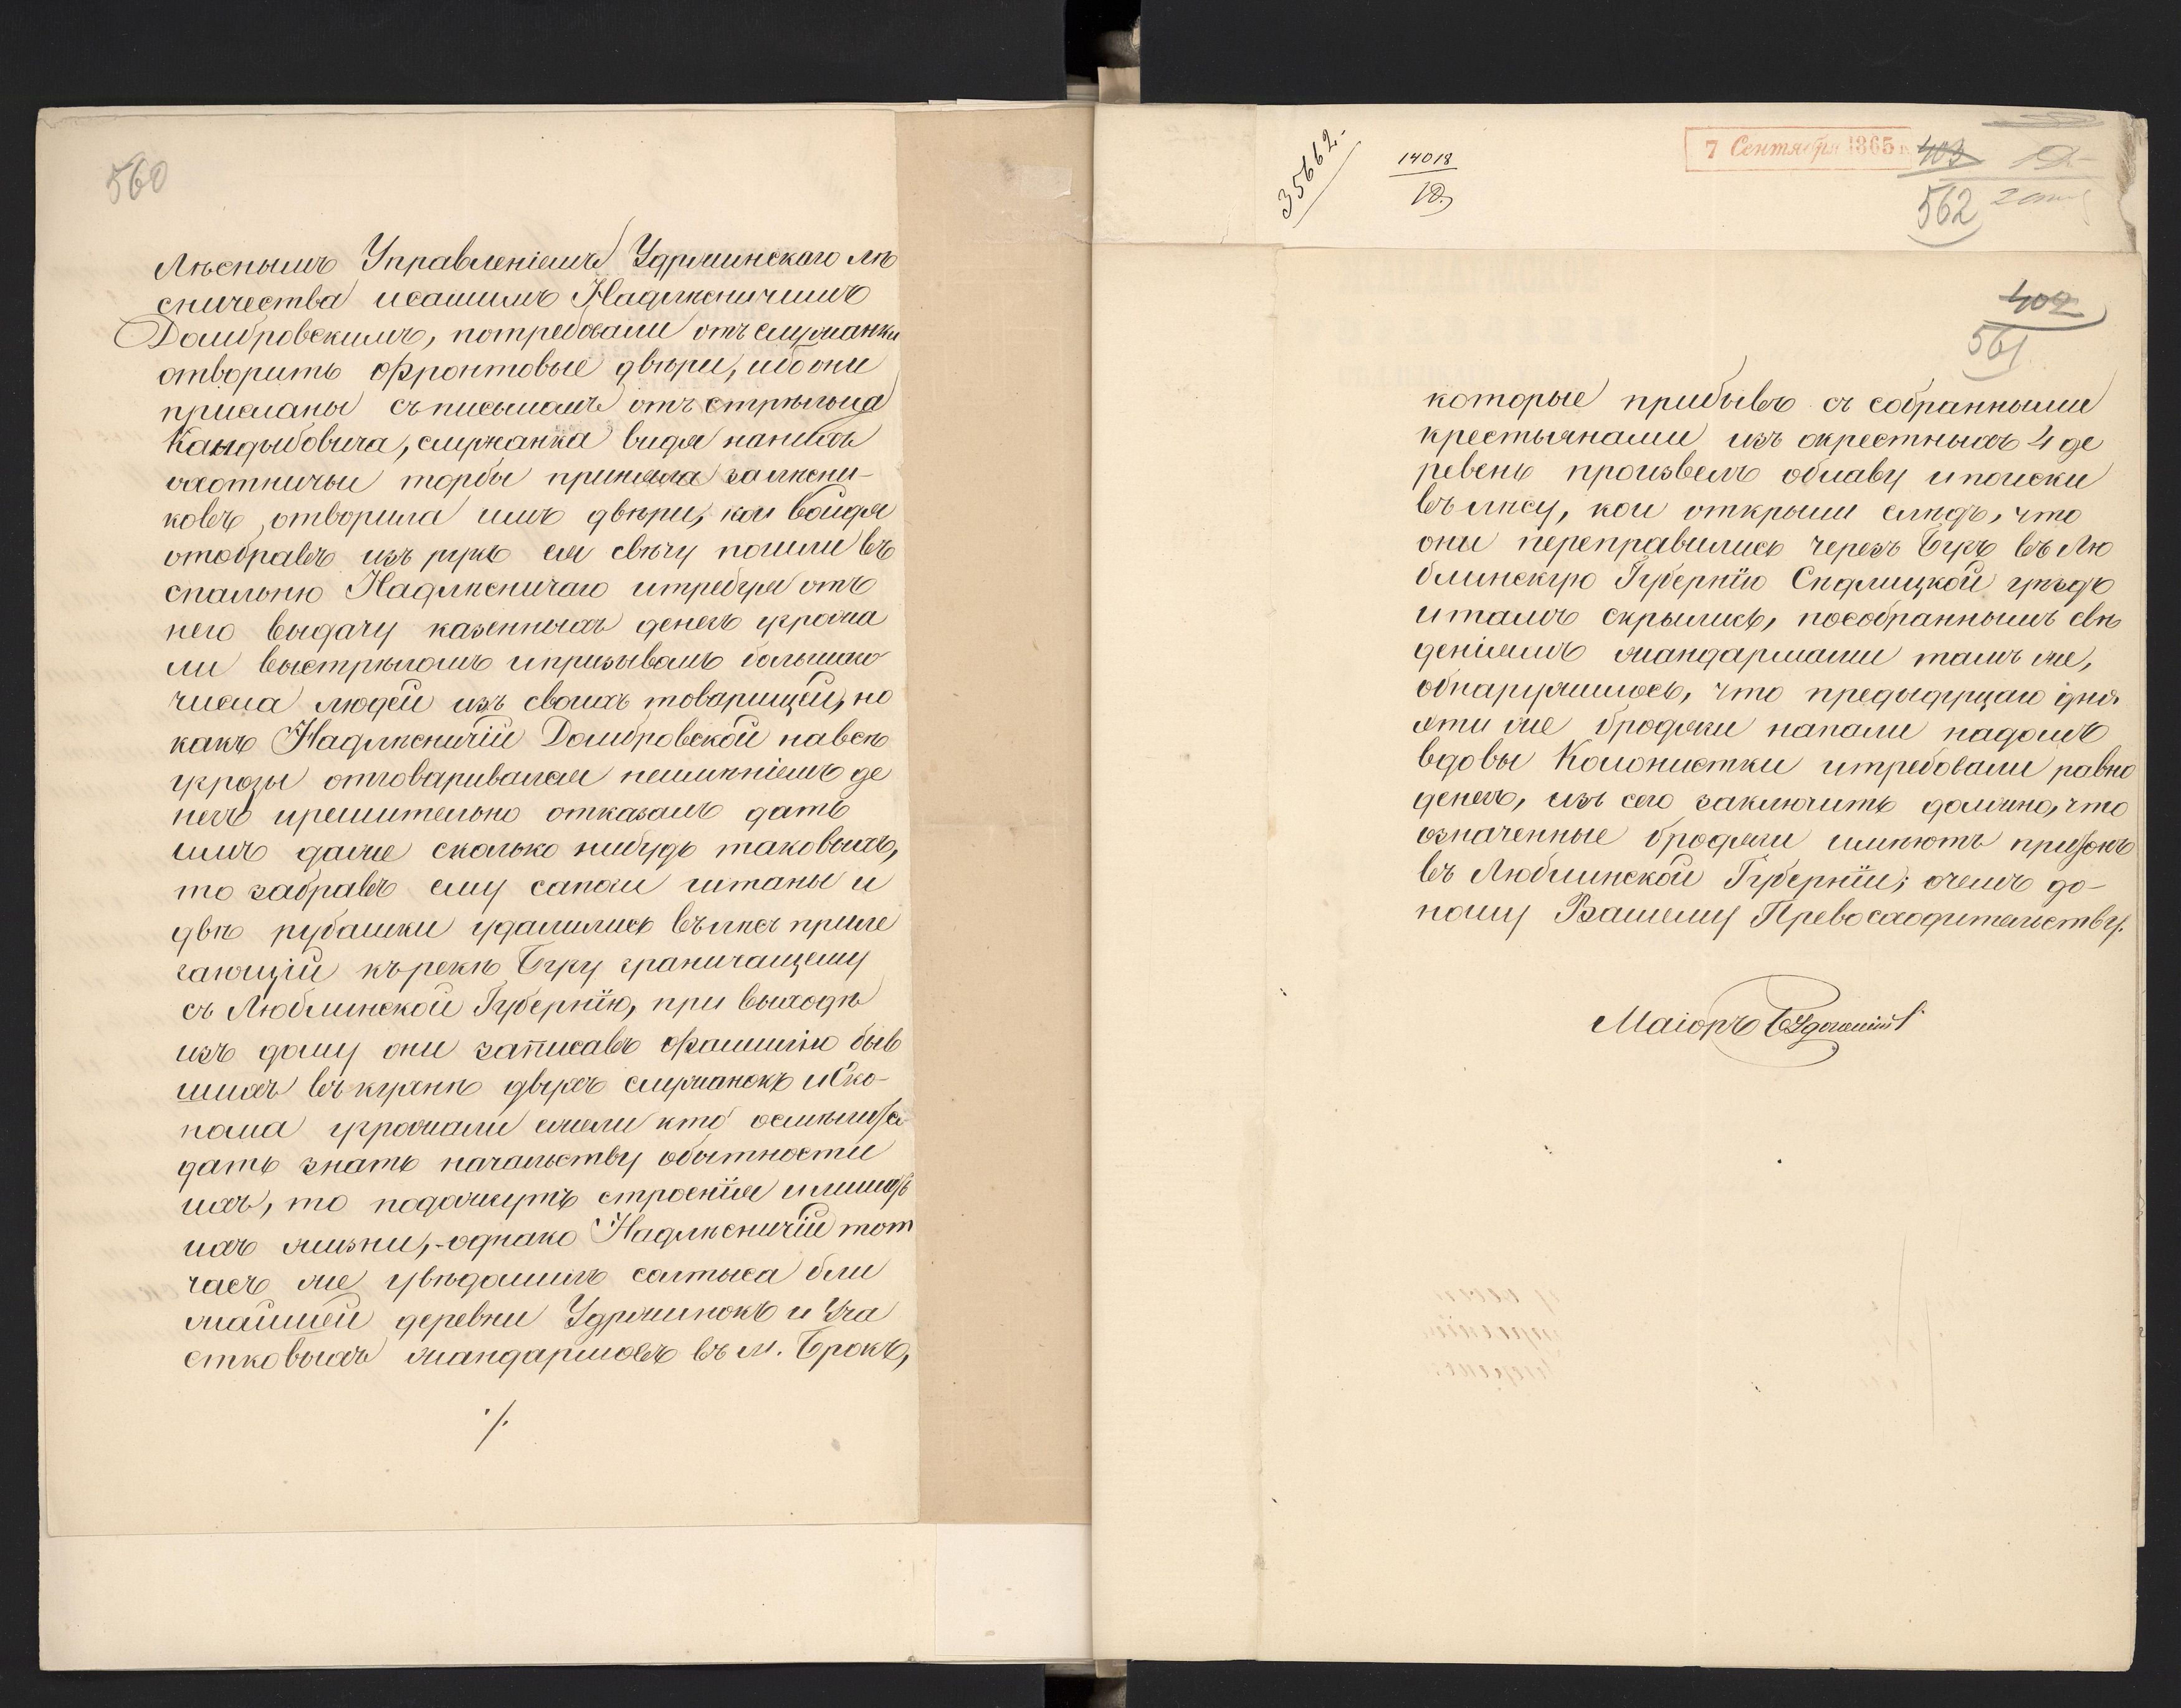 560
Лѣснымъ Управленіемъ Удржинскаго лѣ
сничества и самимъ Надлѣсничимъ
Домбровскимъ, потребовали отъ служанки
отворить фронтовые двѣри, ибо они
присланы съ письмомъ отъ стрѣльца
Кандыбовича, служанка видя на нихъ
охотничьи торбы приняла за лѣсни-
ковъ, отворила имъ двѣри, кои войдя
отобравъ изъ рукъ ея свѣчу пошли въ
спальню Надлѣсничаго и требуя отъ
него выдачу казенныхъ денегъ угрожа
ли выстрѣломъ и призывомъ большаго
числа людей изъ своихъ товарищей, но
какъ Надлѣсничій Домбровской на всѣ
угрозы отговаривался неимѣніемъ де
негъ и решительно отказалъ дать
имъ даже сколько нибудь таковыхъ,
то забравъ ему сапоги штаны и
двѣ рубашки удалились въ лѣсъ приле
гающій къ рекѣ Бугу граничащему
съ Люблинской Губернію, при выходѣ
изъ дому они записавъ фамилію быв
шихъ въ кухнѣ двухъ служанокъ и Эко-
нома угрожали ежели кто осмѣлится
дать знать начальству о бытности
ихъ, то подожгутъ строенія и лишатъ
ихъ жизни, - однако Надлѣсничій тот
часъ же увѣдомилъ солтыса бли
жайшей деревни Удржинокъ и Уча
стковыхъ жандармовъ въ м. Брокъ,
./.
35662.-
14018
7 Сентября 1865
403
562
402
561
которые прибывъ съ собранными
крестьянами изъ окрестныхъ 4 де
ревень произвелъ облаву и поиски
въ лѣсу, кои открыли слѣдъ, что
они переправились черезъ Бугъ въ Лю
блинскую Губернію Сѣдлицкой уѣздъ
и тамъ скрылись, по собраннымъ свѣ
деніямъ жандармами тамъ же,
обнаружилось, что предыдущаго дня
эти же бродяги напали на домъ
вдовы Колонистки и требовали равно
денегъ, изъ сего заключить должно, что
означенные бродяги имѣютъ притонъ
въ Люблинской Губерніи; о чемъ до-
ношу Вашему Превосходительству.
Маіоръ